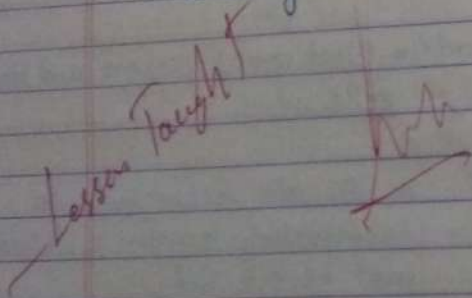 Lesson Taught